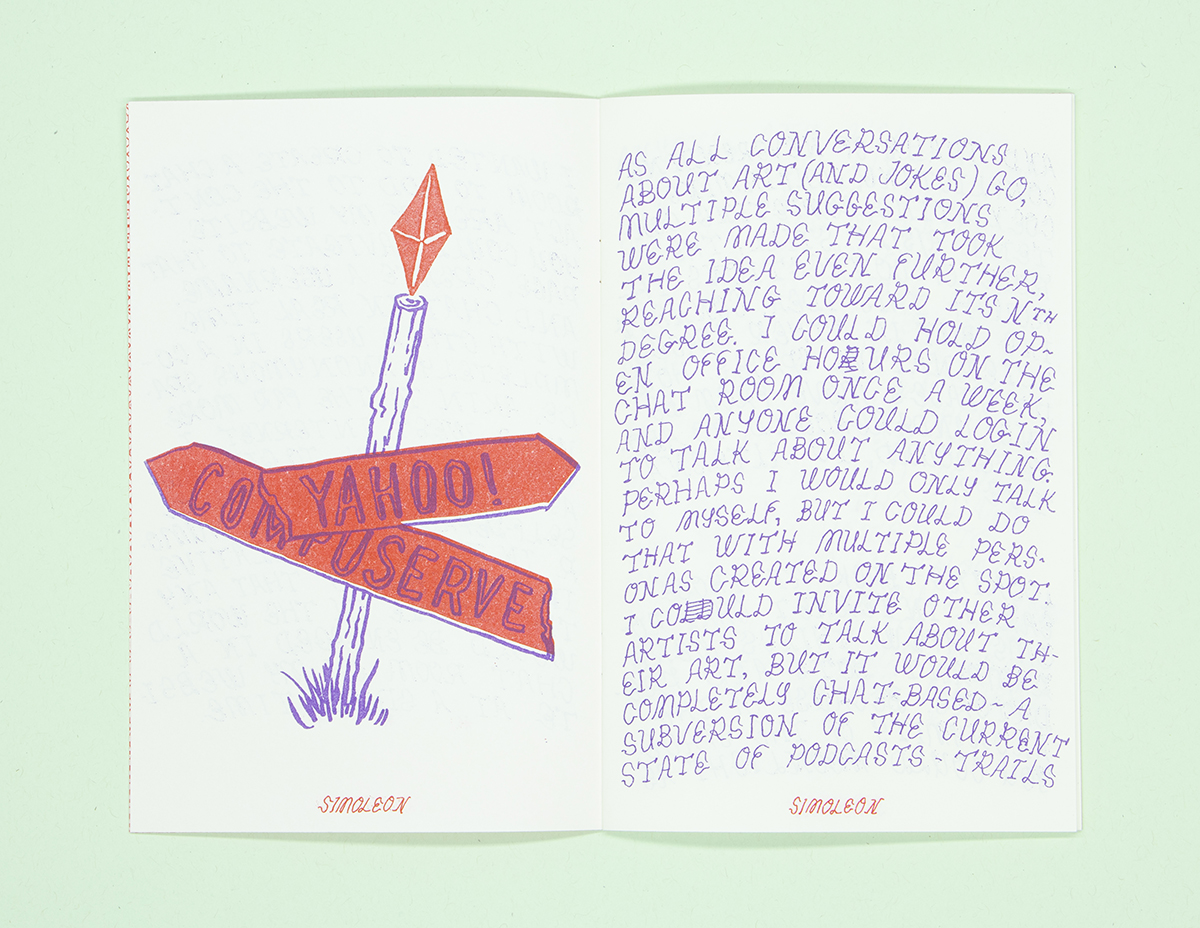 YAHOO!
COMPUSERVE
SIMOLEON
AS ALL CONVERSATIONS
ABOUT ART (AND JOKES) GO,
MULTIPLE SUGGESTIONS
WERE MADE THAT TOOK
THE IDEA EVEN FURTHER,
REACHING TOWARD ITS NTH
DEGREE. I COULD HOLD OP-
EN OFFICE HOURS ON THE
CHAT ROOM ONCE A WEEK,
AND ANYONE COULD LOGIN
TO TALK ABOUT ANYTHING.
PERHAPS I WOULD ONLY TALK
TO MYSELF, BUT I COULD DO
THAT WITH MULTIPLE PERS-
ONAS CREATED ON THE SPOT.
I COULD INVITE OTHER
ARTISTS TO TALK ABOUT TH-
EIR ART, BUT IT WOULD BE
COMPLETELY CHAT-BASED - A
SUBVERSION OF THE CURRENT
STATE OF PODCASTS - TRAILS
SIMOLEON